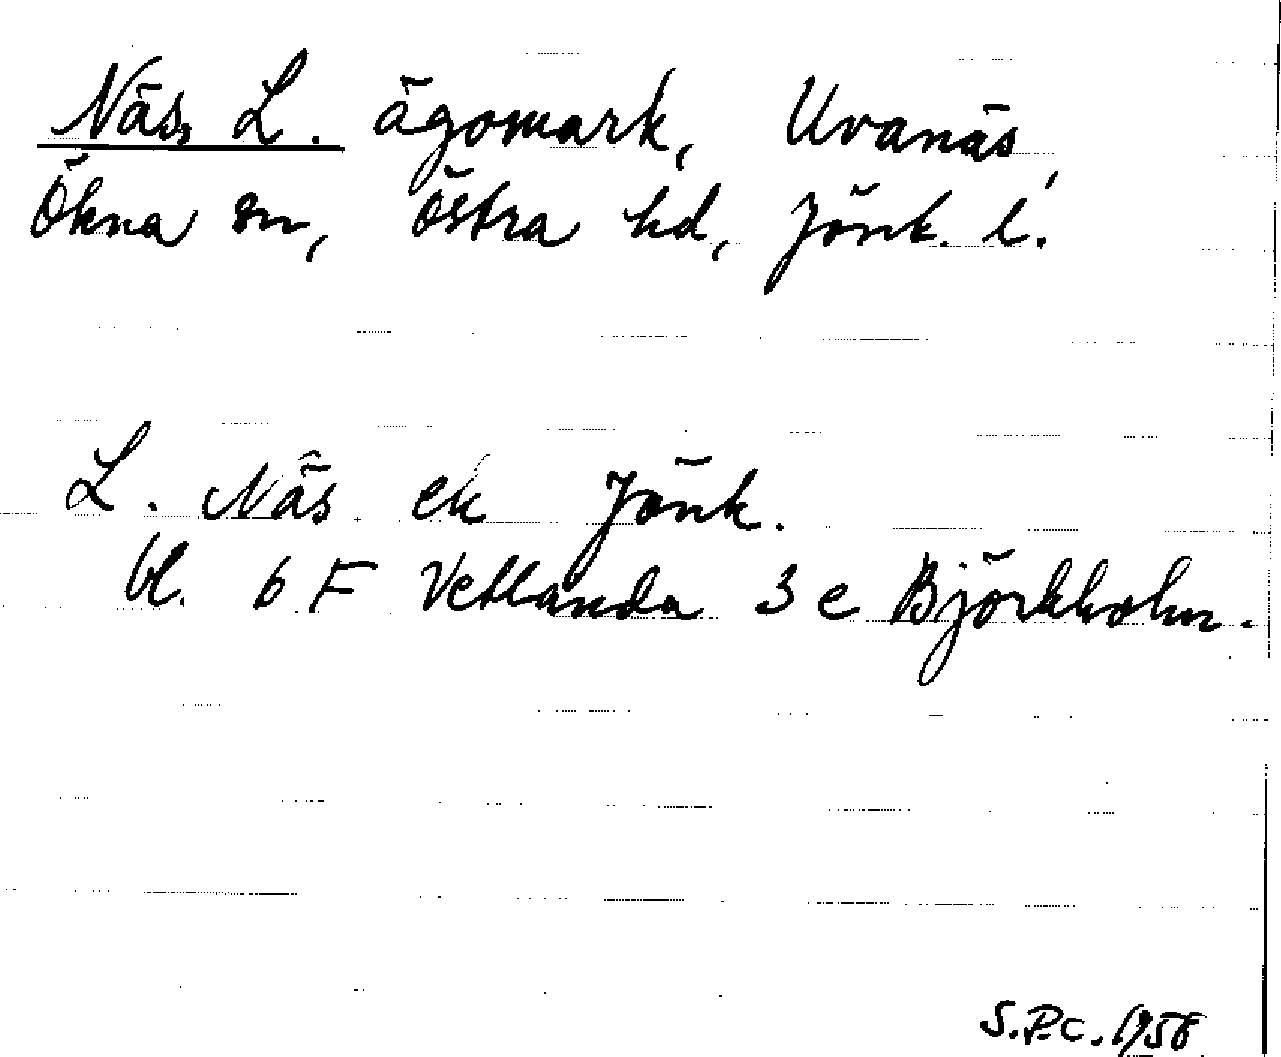 Näs, L. ägomark, Uvanäs,
Ökna sn, Östra hd, Jönk. l.
L. Näs ek Jönk.
bl. 6 F Vetlanda 3 e Björkholm.
S.P.C. 1956